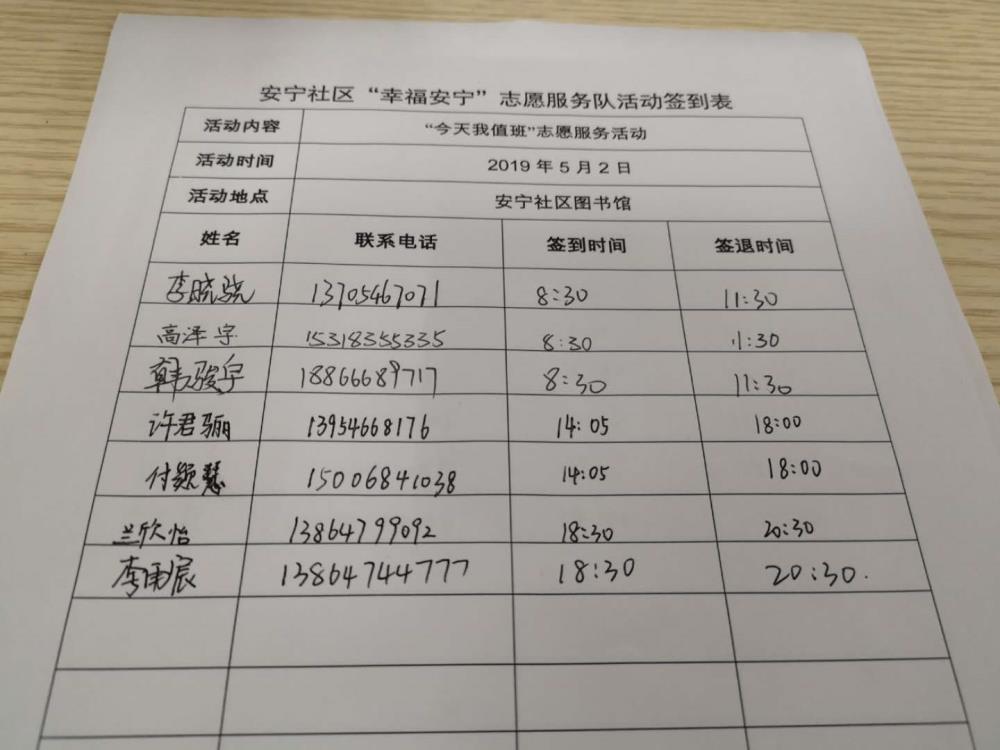 安宁社区“幸福安宁”志愿服务队活动签到表
活动内容 “今天我值班”志愿服务活动
活动时间 2019年5月2日
活动地点 安宁社区图书馆
姓名 联系电话 签到时间 签退时间
李晓骁 13705467071 8:30 11:30
高泽宇 15318355335 8:30 11:30
韩骏宇 18866689717 8:30 11:30
许君骊 13954668176 14:05 18:00
付颖慧 15006841038 14:05 18:00
兰欣怡 13864799092 18:30 20:30
李雨宸 13864744777 18:30 20:30.